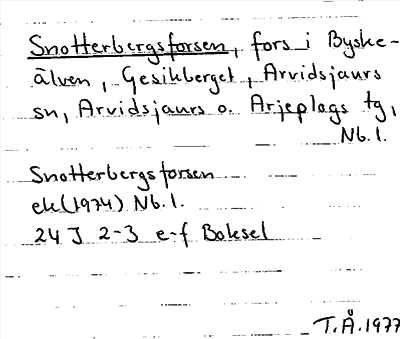 Snotterbergsforsen, fors i Byske-
älven, Gesikberget, Arvidsjaurs
sn, Arvidsjaurs o. Arjeplogs tg,
Nb. l.
Snotterbergsforsen
ek (1974) Nb. l.
24 J 2-3 e-f Boksel
T. Å. 1977